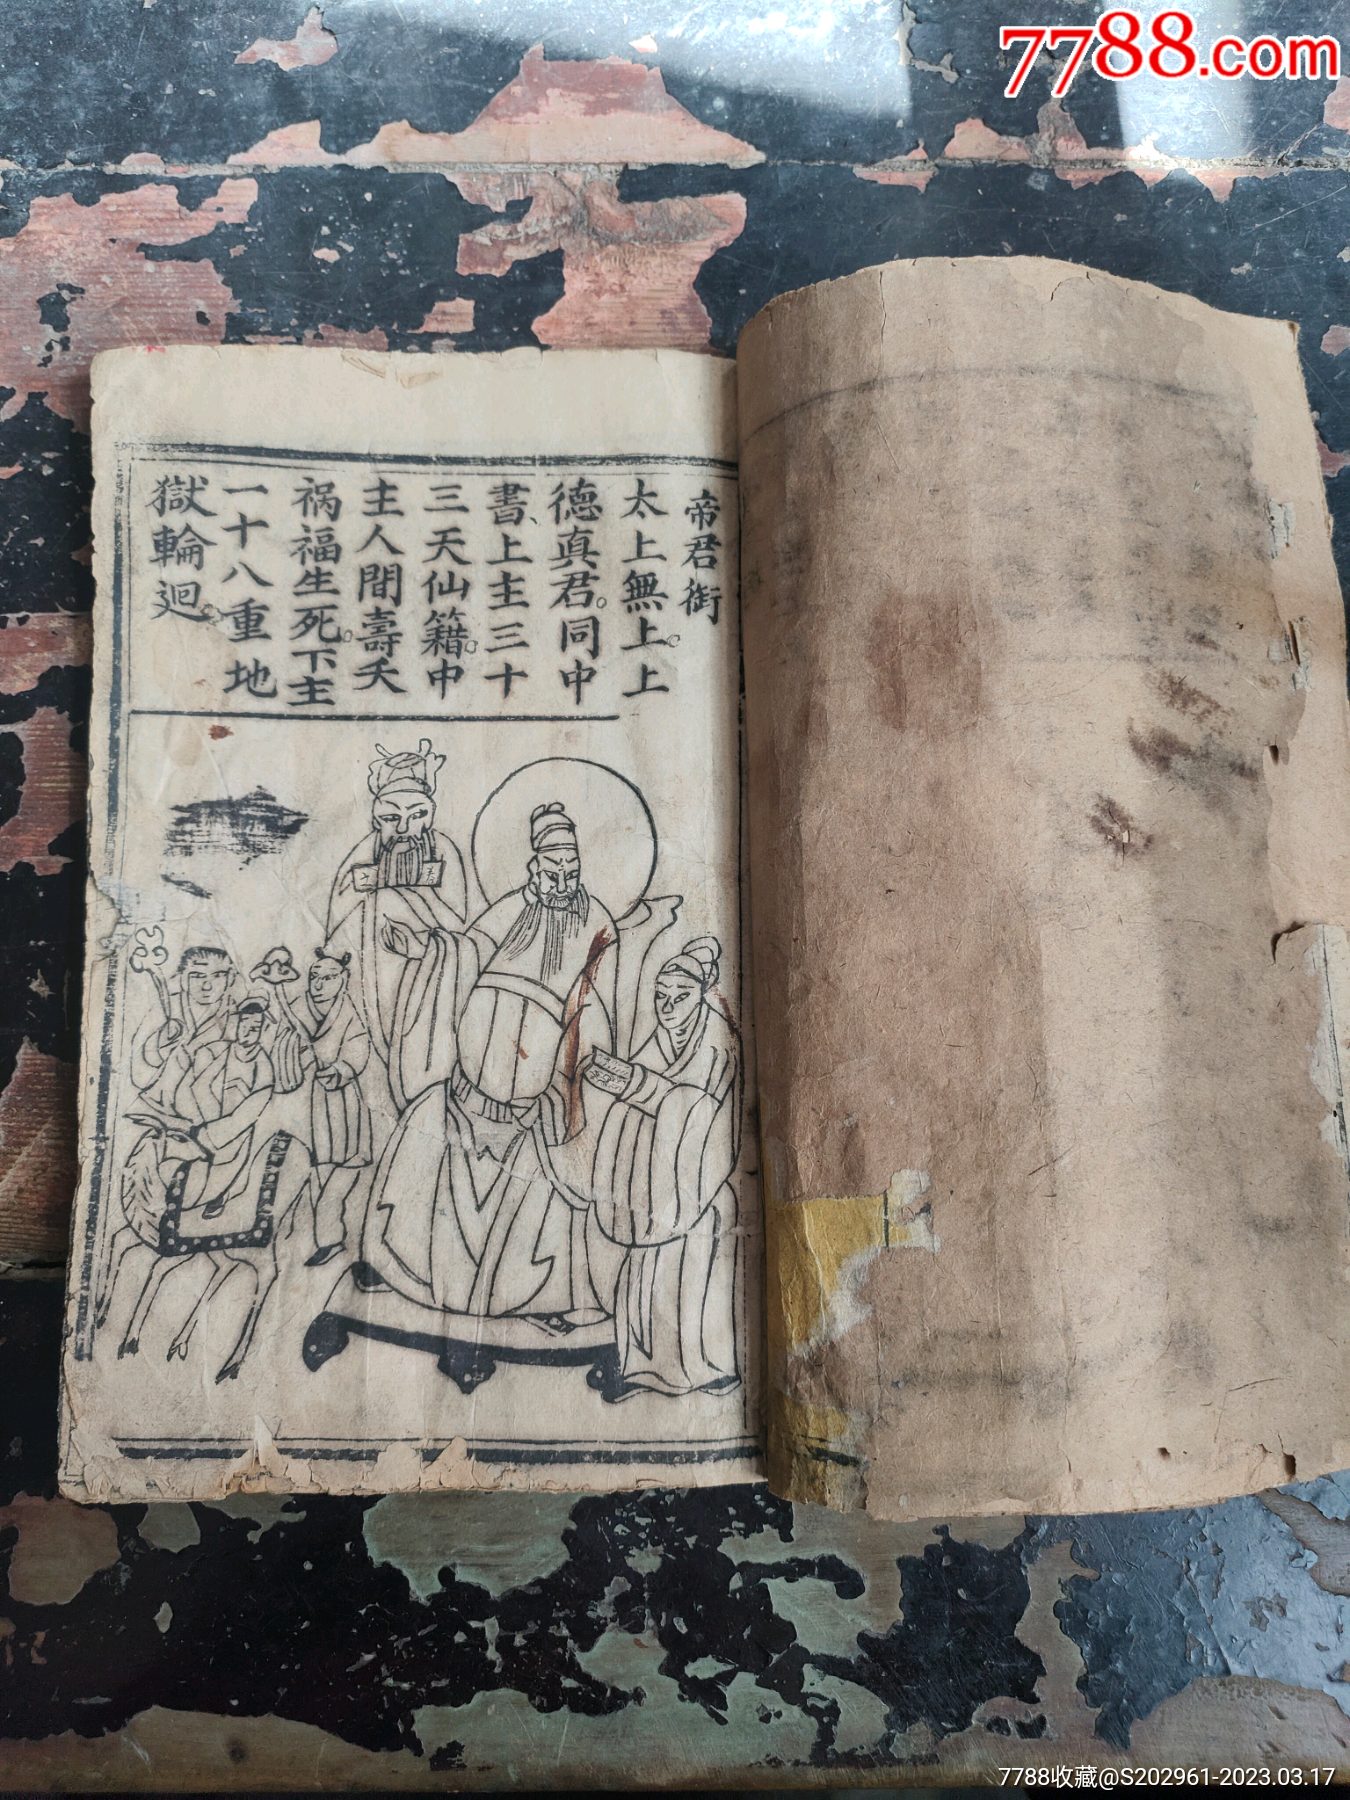 7788.com
帝君衔
太上無上。上
德真君。同中
書、上主三十
三天仙籍。中
主人間壽夭
祸福生死。下主
一十八重地
獄輪迴。
7788收藏@S202961-2023.03.17